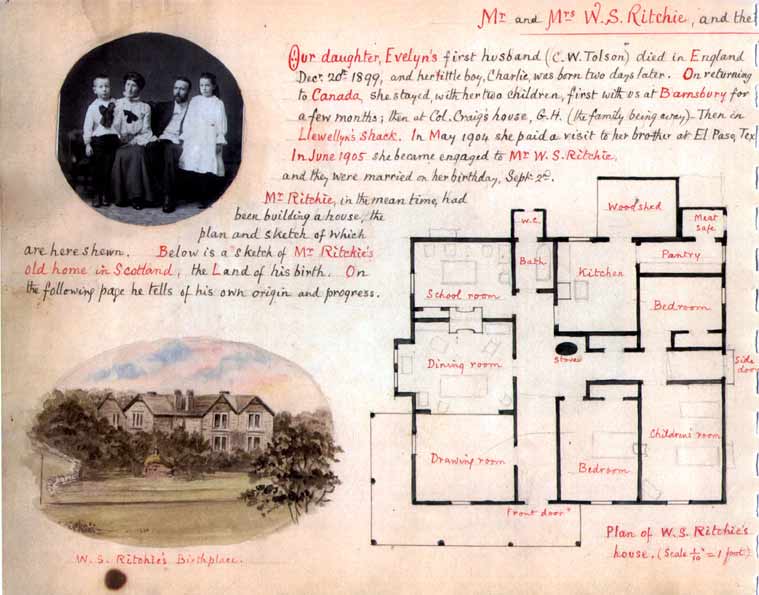 Mr and Mrs W.S. Ritchie, and the
Our daughter, Evelyn's first husband (C.W. Tolson) died in England
Decr. 20th 1899, and her little boy, Charlie, was born two days later. On returning
to Canada, she stayed, with her two children, first with us at Barnsbury for
a few months; then at Col. Craig's house, G.H. (the family being away) - Then in
Llewellyn's Shack. In May 1904 she paid a visit to her brother at El Paso, Tex
In June 1905 she became engaged to Mr W.S. Ritchie,
and they were married on her birthday, Sept. 2nd.
Mr Ritchie, in the mean time, had
been building a house, the
plan and sketch of which
are here shewn. Below is a sketch of Mr Ritchie's
old home in Scotland, the Land of his birth. On
the following page he tells of his own origin and progress.
Woodshed
W.C.
Meat
Safe
Bath
Kitchen
Pantry
School room
Bedroom
Dining room
Stove
Side
door
Drawing room
Bedroom
Children's room
Front door
Plan of W.S. Ritchie's
house. (Scale 1/10" = 1 foot)
W.S. Ritchie's Birthplace.